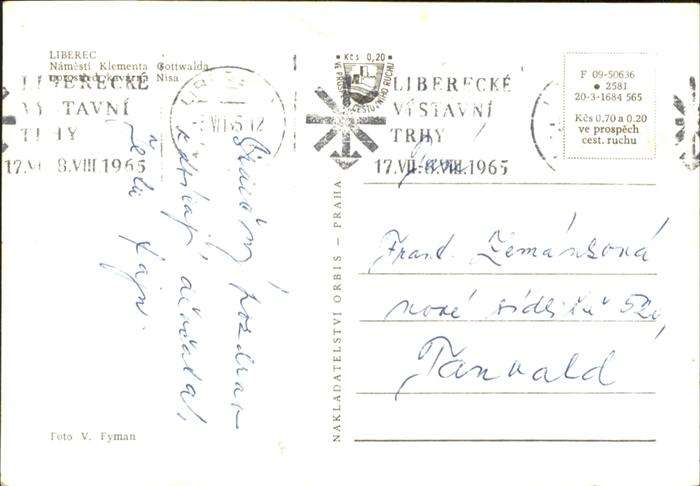 LIBEREC
Náměstí Klementa Gottwalda
uprostřed kavárna Nisa
LIBERECKÉ
VÝSTAVNÍ
TRHY
17.VII.-8.VIII.1965
Kčs 0,20
VE PROSPĚCH CESTOVNÍHO RUCHU
LIBERECKÉ
VÝSTAVNÍ
TRHY
17.VII.-8.VIII.1965
F 09-50636
● 2581
20-3-1684 565
Kčs 0,70 a 0.20
ve prospěch
cest. ruchu
pozdrav
děvčata,
Frant. Zemánková
nové sídliště 520,
Tanvald
NAKLADATELSTVÍ ORBIS — PRAHA
Foto V. Fyman